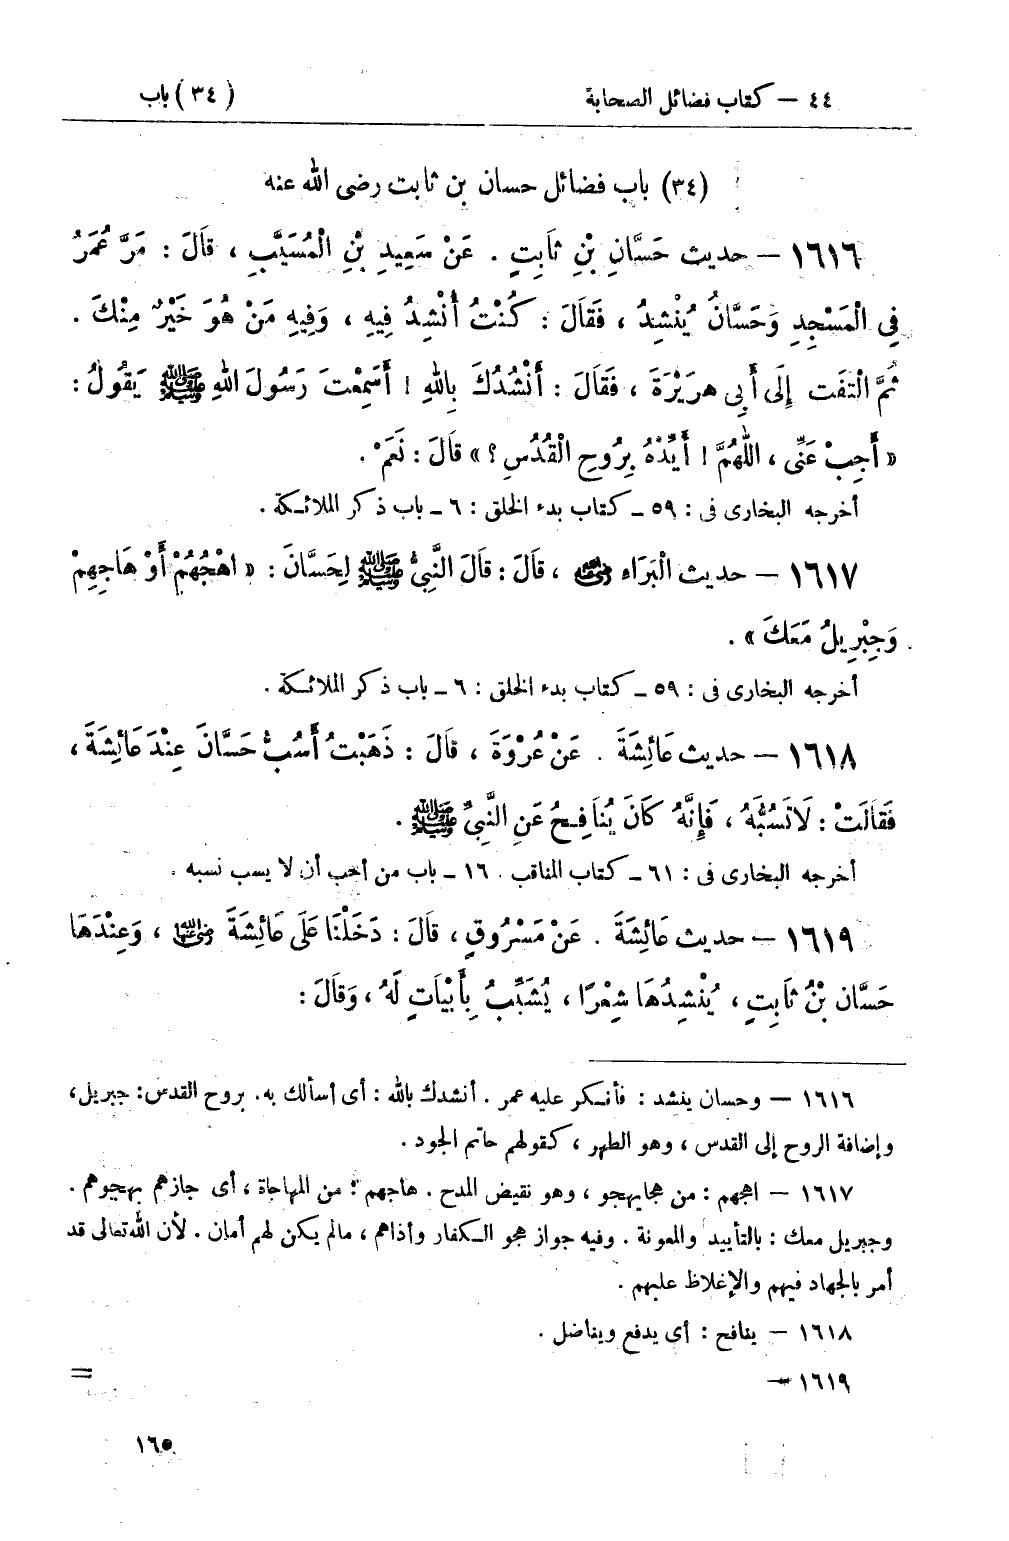 ٤٤ – كتاب فضائل الصحابة (٣٤) باب
(٣٤) باب فضائل حسان بن ثابت رضى الله عنه
١٦١٦ – حديث حَسَّانِ بْنِ ثَابِتٍ . عَنْ سَعِيدِ بْنِ الْمُسَيَّبِ ، قَالَ : مَرَّ عُمَرُ
فِى الْمَسْجِدِ وَحَسَّانُ يُنْشِدُ ، فَقَالَ : كُنْتُ أُنْشِدُ فِيهِ ، وَفِيهِ مَنْ هُوَ خَيْرٌ مِنْكَ .
ثُمَّ الْتَفَتَ إِلَى أَبِى هُرَيْرَةَ ، فَقَالَ : أَنْشُدُكَ بِاللهِ ! أَسَمِعْتَ رَسُولَ اللهِ ﷺ يَقُولُ :
« أَجِبْ عَنِّى ، اللّٰهُمَّ ! أَيِّدْهُ بِرُوحِ الْقُدُسِ ؟ » قَالَ : نَعَمْ .
أخرجه البخارى فى : ٥٩ ـ كتاب بدء الخلق : ٦ ـ باب ذكر الملائكة .
١٦١٧ – حديث الْبَرَاءِ رضي الله عنه ، قَالَ : قَالَ النَّبِىُّ ﷺ لِحَسَّانَ : « اهْجُهُمْ أَوْ هَاجِهِمْ
وَجِبْرِيلُ مَعَكَ » .
أخرجه البخارى فى : ٥٩ ـ كتاب بدء الخلق : ٦ ـ باب ذكر الملائكة .
١٦١٨ – حديث عَائِشَةَ . عَنْ عُرْوَةَ ، قَالَ : ذَهَبْتُ أَسُبُّ حَسَّانَ عِنْدَ عَائِشَةَ ،
فَقَالَتْ : لَا تَسُبُّهُ ، فَإِنَّهُ كَانَ يُنَافِحُ عَنِ النَّبِىِّ ﷺ .
أخرجه البخارى فى : ٦١ ـ كتاب المناقب . ١٦ ـ باب من أحب أن لا يسب نسبه .
١٦١٩ – حديث عَائِشَةَ . عَنْ مَسْرُوقٍ ، قَالَ : دَخَلْنَا عَلَى عَائِشَةَ رضي الله عنها ، وَعِنْدَهَا
حَسَّان بْنُ ثَابِتٍ ، يُنْشِدُهَا شِعْرًا ، يُشَبِّبُ بِأَبْيَاتٍ لَهُ ، وَقَالَ :
١٦١٦ – وحسان ينشد : فأنكر عليه عمر . أنشدك بالله : أى أسألك به . بروح القدس : جبريل ،
وإضافة الروح إلى القدس ، وهو الطهر ، كقولهم حاتم الجود .
١٦١٧ – اهجهم : من هجا يهجو ، وهو نقيض المدح . هاجهم : من المهاجاة ، أى جازهم بهجوهم .
وجبريل معك : بالتأييد والمعونة . وفيه جواز هجو الكفار وأذاهم ، مالم يكن لهم أمان . لأن الله تعالى قد
أمر بالجهاد فيهم والإغلاظ عليهم .
١٦١٨ – ينافح : أى يدفع ويناضل .
١٦١٩ – =
١٦٥